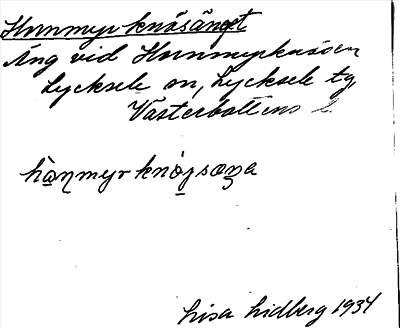 Hornmyrknösänget
Äng vid Hornmyrknösen
Lycksele sn, Lycksele tg,
Västerbottens l.
hòn̲myrknö̀j̲sæŋa
Lisa Lidberg 1934